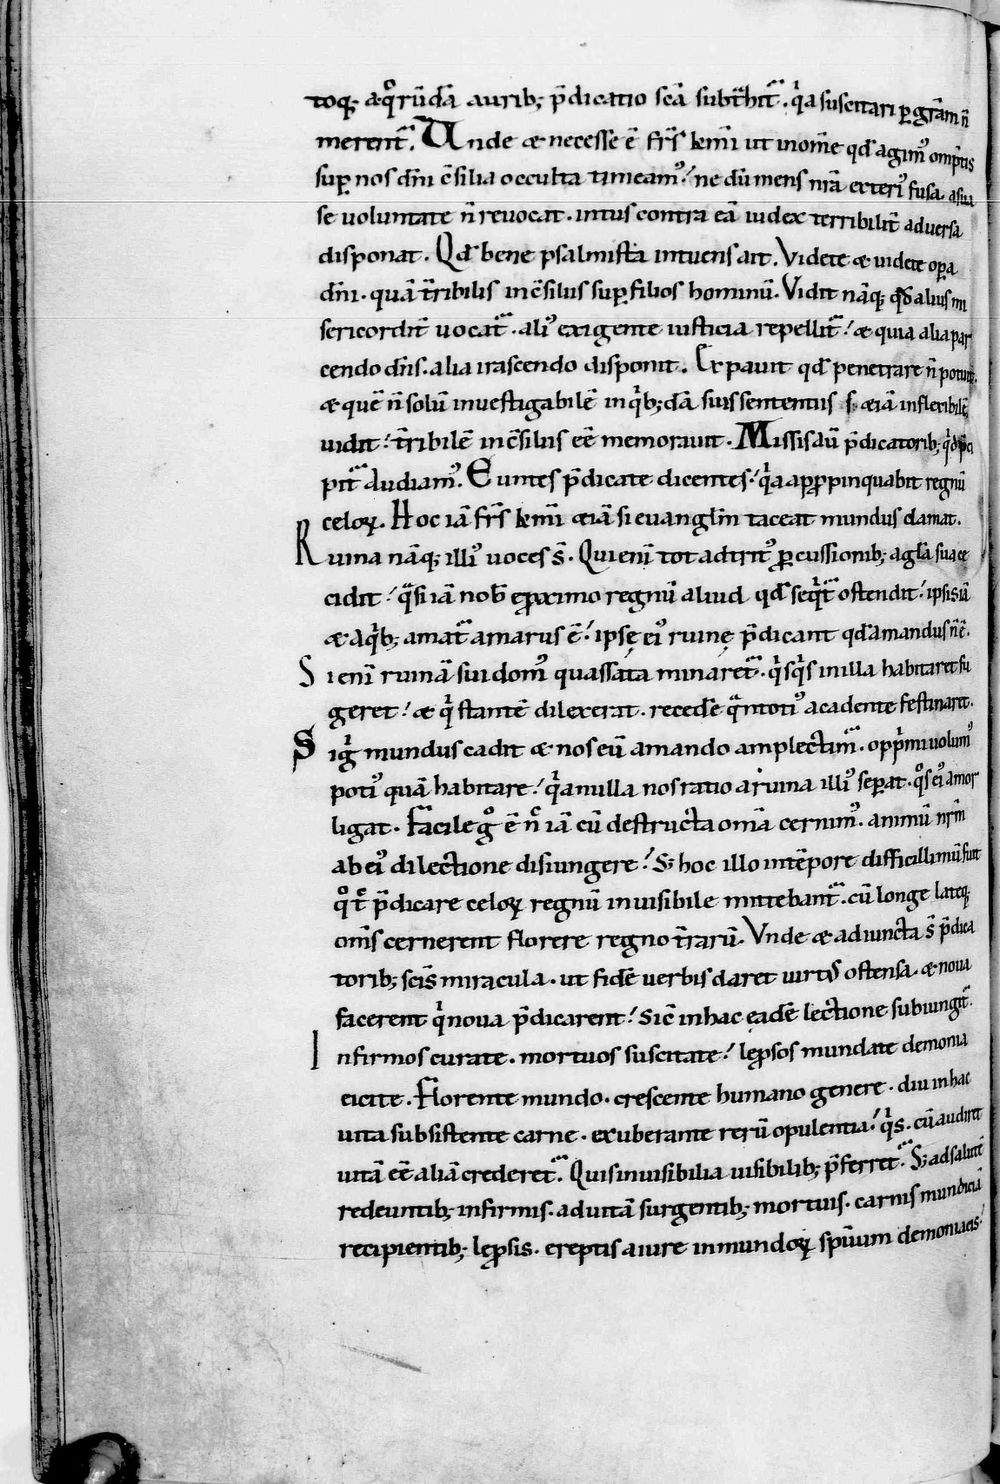 toq; aq̊rūdā aurib; p̄dicatio scā subt̄hit᷑. q̓a suscitari ꝑ gr̄am n̄
merent᷑. Unde & necesse ē fr̄s kmī ut inom̄e qd̄ agim᷒ omp̄tis
sup nos dn̄i c̄silia occulta timeam᷒. ne dū mens nr̄a exteri᷒ fusa. a sua
se uoluntate n̄ reuocat. intus contra eā iudex terribilit̄ aduersa
disponat. Qd̄ bene psalmista intuens ait. Videte & uidete oꝑa
dn̄i. quā t̄ribilis in c̄siliis sup filios hominū. Vidit nāq; qd̄ alius mi
sericordit̄ uocat᷑. ali᷒ exigente iusticia repellit᷑. & quia alia par
cendo dn̄s. alia irascendo disponit. Expauit qd̄ penetrare n̄ potuit.
& quē n̄ solū inuestigabilē in q̓b;dā suis sententiis s; &iā inflexibilē
uidit. t̄ribilē in c̄siliis eē memorauit. Missis aū p̄dicatorib; q̓d p̄ci
pit᷑ audiam᷒. Euntes p̄dicate dicentes. q̓a appropinquabit regnū
celoꝝ. Hoc iā fr̄s kmī &iā si euangl̄m taceat mundus clamat.
Ruina nāq; illi᷒ uoces s̄. Qui enī tot adtrit᷒ ꝑcussionib; a gl̄a sua ce
cidit. q̄si iā nob̄ e ꝓximo regnū aliud qd̄ seq̓t᷑ ostendit. ipsis iā
& a q̓b; amat᷑ amarus ē. ipsę ei᷒ ruinę p̄dicant qd̄ amandus n̄ ē.
Si enī ruinā sui dom᷒ quassata minaret᷑. q̓sq̓s in illa habitaret fu
geret. & q̓ stantē dilexerat. recedē q̄ntoti᷒ a cadente festinaret.
Si g̓ mundus cadit & nos eū amando amplectim᷑. opp̓mi uolum᷒
poti᷒ quā habitare. q̓a nulla nos ratio a ruina illi᷒ seꝑat. q̊s ei᷒ amor
ligat. Facile g̊ ē nc̄ iā cū destructa om̄a cernim᷒. animū nr̄m
ab ei᷒ dilectione disiungere. S; hoc illo in tēpore difficillimū fuit
q̊ t̄ p̄dicare celoꝝ regnū inuisibile mittebant᷑. cū longe lateq;
om̄s cernerent florere regno t̄rarū. Vnde & adiuncta s̄ p̄dica
torib; scīs miracula. ut fidē uerbis daret uirt᷒ ostensa. & noua
facerent q̓ noua p̄dicarent. sic̄ in hac eadē lectione subiungit᷑.
Infirmos curate. mortuos suscitate. leprosos mundate demonia
eicite. Florente mundo. crescente humano genere. diu in hac
uita subsistente carne. exuberante rerū opulentia. q̓s. cū audiret
uitā eē aliā crederet᷑. Quis inuisibilia uisibilib; p̄ferret᷑. S; ad salutē
redeuntib; infirmis. ad uitā surgentib; mortuis. carnis mundiciā
recipientib; leprosis. ereptis a iure inmundoꝝ spirituum demoniacis.